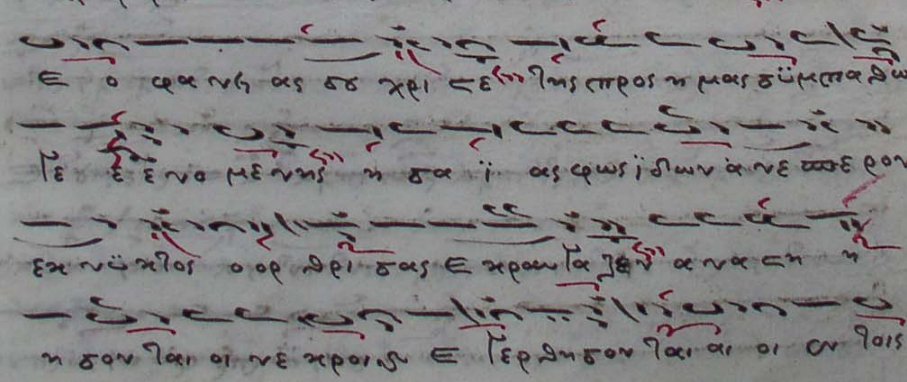 ε ο φα νει ας σου χρι στε της προς η μας συ μπα θω
γε ε ε νο με νης η σα ϊ ας φως ϊ δων α νε σπε ρον
εκ νυ κτος ο ορ θρι σας ε κραυ γα ζεν α να στη η
η σον ται οι νε κροι ϗ ε γερ θη σον ται αι οι εν τοις